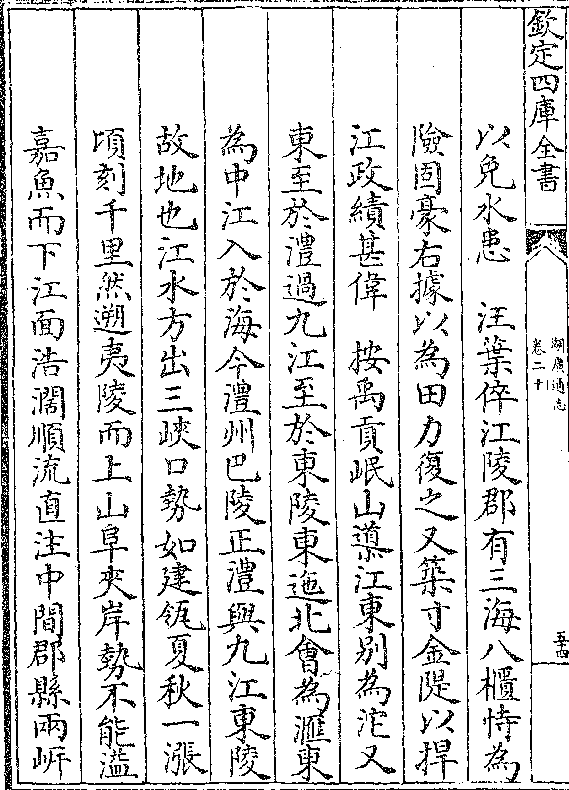 欽定四庫全書
湖廣通志
卷二十
五十四
以免水患　汪葉倅江陵郡有三海八櫃恃為
險固豪右據以為田力復之又築寸金隄以捍
江政績甚偉　按禹貢岷山導江東別為沱又
東至於澧過九江至於東陵東迤北會為滙東
為中江入於海今澧州巴陵正澧與九江東陵
故地也江水方出三峽口勢如建瓴夏秋一漲
頃刻千里然遡夷陵而上山阜夾岸勢不能溢
嘉魚而下江面浩濶順流直注中間郡縣兩岍